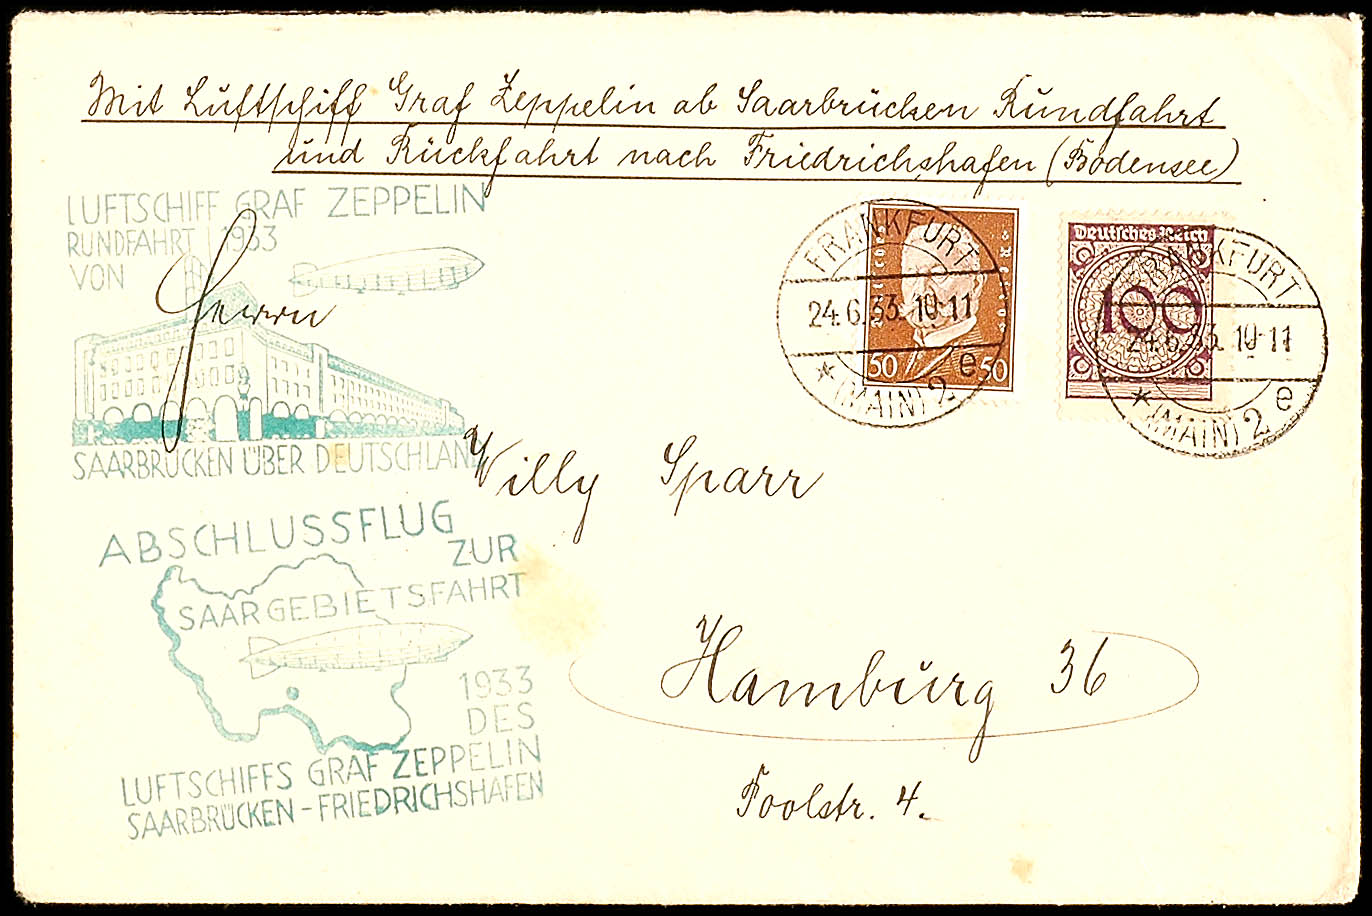 Mit Luftschiff Graf Zeppelin ab Saarbrücken Rundfahrt
und Rückfahrt nach Friedrichshafen (Bodensee)
LUFTSCHIFF GRAF ZEPPELIN
RUNDFAHRT 1933
VON
SAARBRÜCKEN ÜBER DEUTSCHLAND
Herrn
FRANKFURT
24.6.33. 10-11
* (MAIN) 2 e
50 50
Deutsches Reich
100
FRANKFURT
24.6.33. 10-11
* (MAIN) 2 e
Willy Sparr
ABSCHLUSSFLUG
ZUR
SAARGEBIETSFAHRT
1933
DES
LUFTSCHIFFS GRAF ZEPPELIN
SAARBRÜCKEN-FRIEDRICHSHAFEN
Hamburg 36
Poolstr. 4.